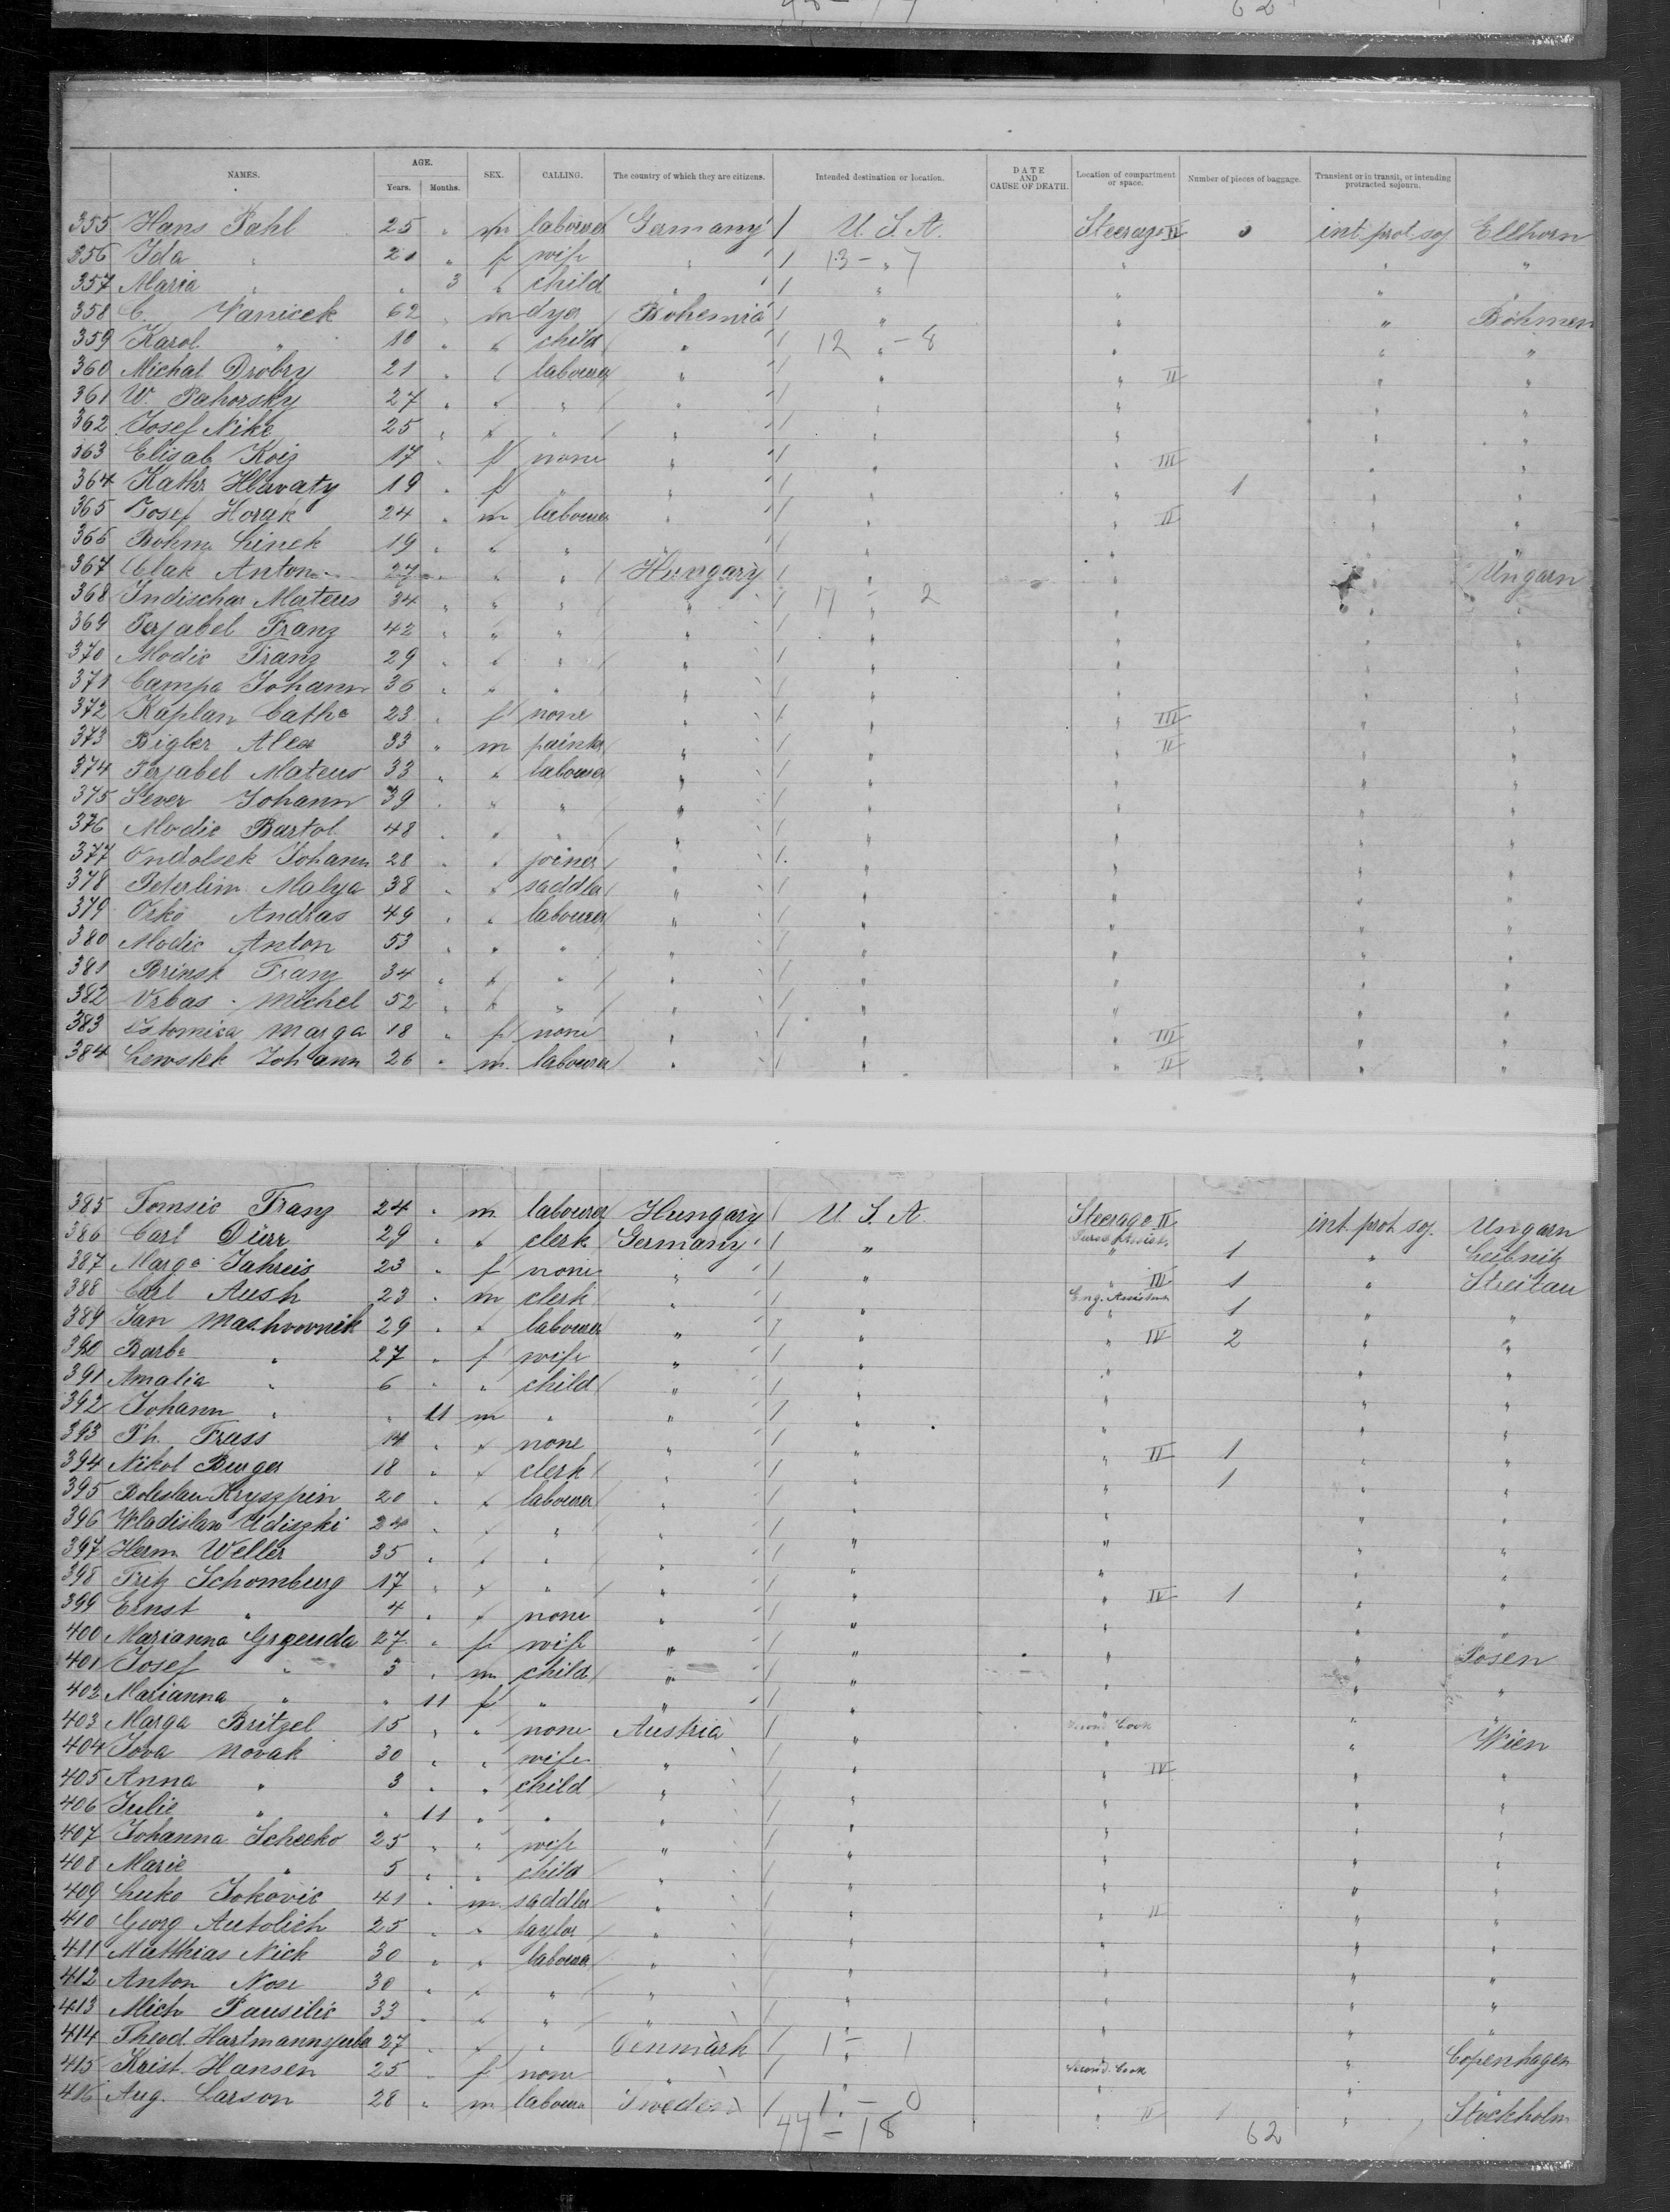 62
NAMES. AGE. SEX. CALLING. The country of which they are citizens. Intended destination or location. DATE AND CAUSE OF DEATH. Location of compartment or space. Number of pieces of baggage. Transient or in transit, or intending protracted sojourn.
Years. Months.
355 Hans Pahl 25 " m labourer Germany / U. S. A. Steerage II 0 int. prot. soj Ellhorn
356 Ida " 20 " f wife " / 13 - 7 " " "
357 Maria " " 3 " child " / " " " "
358 C. Vanicek 62 " m dyer Bohemia / " " " Böhmen
359 Karol " 10 " " child " / 12 - 8 " " "
360 Michal Drobry 21 " " labourer " / " " II " "
361 W. Pahorsky 27 " " " " / " " " "
362 Josef Nike 25 " " " " / " " " "
363 Elisab Koiz 17 " f none " / " " III " "
364 Kathr Hlavaty 19 " f " " / " " 1 " "
365 Josef Horak 24 " m labourer " / " " II " "
366 Bohm. Linek 19 " " " " / " " " "
367 Ulak Anton 27 " " " Hungary / " " " Ungarn
368 Indischar Mateus 34 " " " " / 17 - 2 " " "
369 Perjabel Franz 42 " " " " / " " " "
370 Modic Franz 29 " " " " / " " " "
371 Campa Johann 36 " " " " / " " " "
372 Kaplan Cath⁠a 23 " f none " / " " III " "
373 Bigler Alex 33 " m painter " / " " II " "
374 Perjabel Mateus 33 " " labourer " / " " " "
375 Sever Johann 39 " " " " / " " " "
376 Modic Bartol 48 " " " " / " " " "
377 Ondolsek Johann 28 " " joiner " / " " " "
378 Peterlim Malya 38 " " saddler " / " " " "
379 Orko Andras 49 " " labourer " / " " " "
380 Modic Anton 53 " " " " / " " " "
381 Brinsk Franz 34 " " " " / " " " "
382 Vrbas Michel 52 " " " " / " " " "
383 Istomica Marga 18 " f none " / " " III " "
384 Lewstek Johann 26 " m. labourer " / " " II " "
385 Tomsic Franz 24 " m labourer Hungary / U. S. A Steerage II int. prot. soj. Ungarn
386 Carl Dürr 29 " " clerk Germany / " " 1 " Leibnitz
387 Marga Jahreis 23 " f none " / " " III 1 " Streitau
388 Carl Aush 23 " m clerk " / " Eng. Assistent 1 " "
389 Jan Mashrovnik 29 " " labourer " / " " IV 2 " "
390 Barba " 27 " f wife " / " " " "
391 Amalia " 6 " " child " / " " " "
392 Johann " " 11 m " " / " " " "
393 Ph. Trass 14 " " none " / " " II 1 " "
394 Nikol Burger 18 " " clerk " / " " 1 " "
395 Boleslau Kryszpin 20 " " labourer " / " " " "
396 Wladislaw Udiszki 24 " " " " / " " " "
397 Herm Weller 35 " " " " / " " " "
398 Fritz Schomburg 17 " " " " / " " IV 1 " "
399 Ernst " 4 " " none " / " " " "
400 Marianna Grzenda 27 " f wife " / " " " Posen
401 Josef " 3 " m child " / " " " "
402 Marianna " " 11 f " " / " " " "
403 Marga Britzel 15 " " none Austria / " Second Cook " Wien
404 Jova Novak 30 " " wife " / " " IV " "
405 Anna " 3 " " child " / " " " "
406 Julie " " 11 " " " / " " " "
407 Johanna Scheeko 25 " " wife " / " " " "
408 Marie " 5 " " child " / " " " "
409 Luko Jokovic 41 " m. saddler " / " " II " "
410 Georg Autolich 25 " " taylor " / " " " "
411 Matthias Nick 30 " " labourer " / " " " "
412 Anton Nose 30 " " " " / " " " "
413 Mich Pausilic 33 " " " " / " " " "
414 Theod. Hartmann 27 " " " Denmark / 1 - 1 " " Copenhagen
415 Krist. Hansen 25 " f none " / " Second. Cook " "
416 Aug. Larson 28 " m labourer Sweden / 1 - 0 " II 1 " Stockholm
44 - 18 62